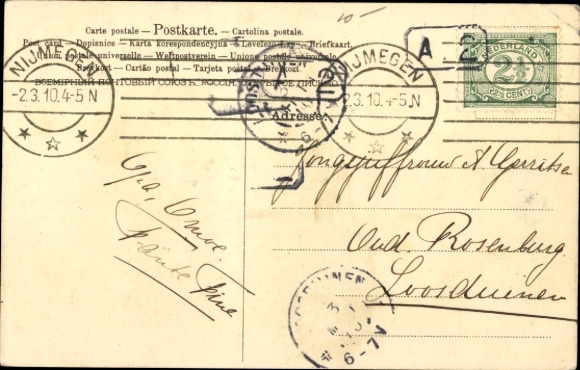 Carte postale — Postkarte. — Cartolina postale.
Post card — Dopisnice — Karta korespondencyjna — Levelező-Lap — Briefkaart.
Union postale universelle — Weltpostverein — Unione postale universale
Brefkort — Cartão postal — Tarjeta postal — Brevkort
ВСЕМІРНЫЙ ПОЧТОВЫЙ СОЮЗЪ. РОССІЯ.
10-
NIJMEGEN
-2.3.10.4-5 N
NIJMEGEN
-2.3.10.4-5 N
A
NEDERLAND
2½
2½ CENT
6-7
Adresse
Jongejuffrouw A Gerritsen
Oud. Rosenburg
Loosduinen
Opa, Omoe.
Tante
LOOSDUINEN
3
6-7V